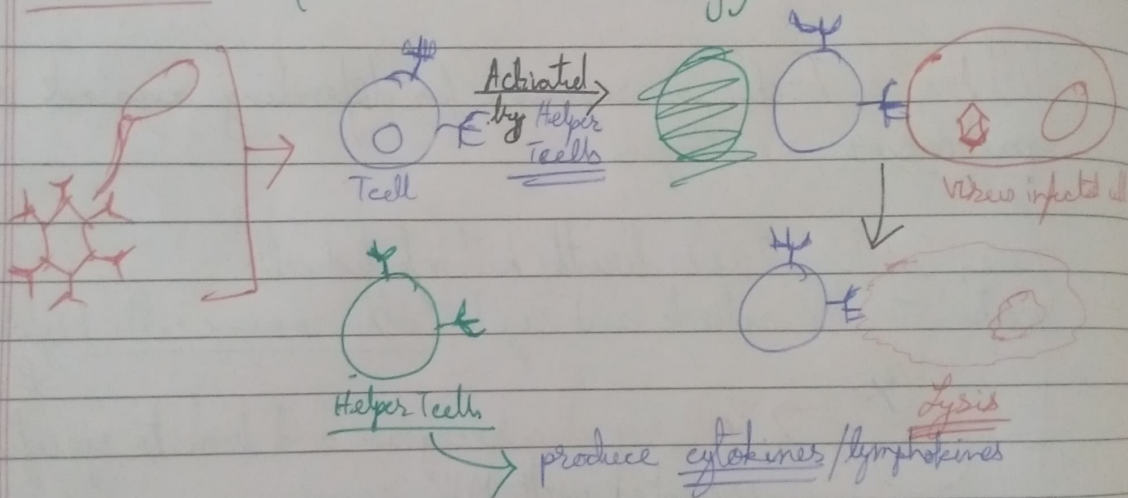 Activated
by Helper
Tcells
Tcell
virus infected
Helper Tcells
Lysis
produce cytokines/lymphokines